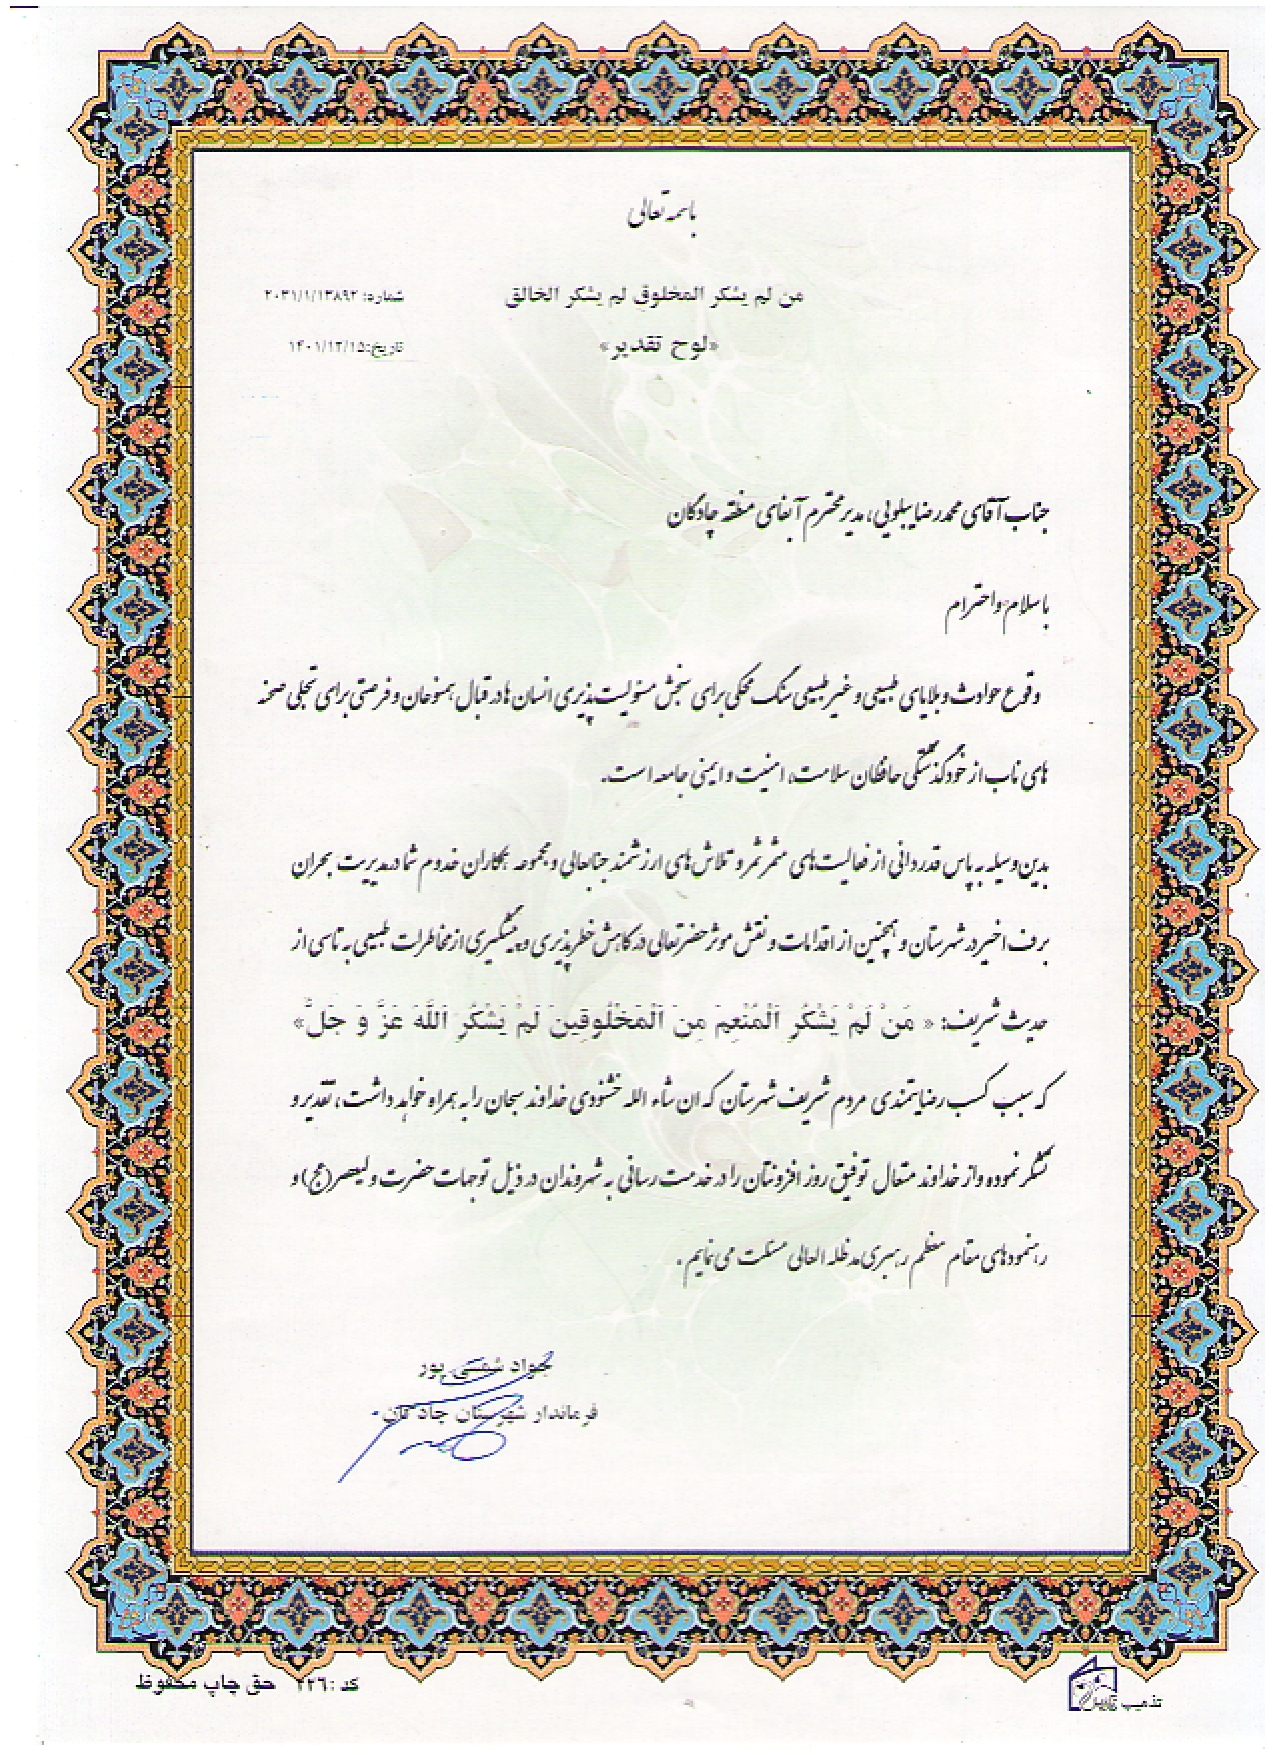 باسمه تعالی
من لم یشکر المخلوق لم یشکر الخالق
شماره: ۲۰۳۱/۱/۱۳۸۹۲
«لوح تقدیر»
تاریخ:۱۴۰۱/۱۲/۱۵
جناب آقای محمدرضا پیلویی، مدیر محترم آبفای منطقه چادگان
با سلام و احترام
وقوع حوادث و بلایای طبیعی و غیر طبیعی سنگ محکی برای سنجش مسئولیت پذیری انسان ها در قبال همنوعان و فرصتی برای تجلی صحنه
های ناب از خودگذشتگی حافظان سلامت، امنیت و ایمنی جامعه است.
بدین وسیله به پاس قدردانی از فعالیت های مثمر ثمر و تلاش های ارزشمند جنابعالی و مجموعه همکاران خدوم شما در مدیریت بحران
برف اخیر در شهرستان و همچنین از اقدامات و نقش موثر حضرتعالی در کاهش خطرپذیری و پیشگیری از مخاطرات طبیعی به تاسی از
حدیث شریف: « مَنْ لَمْ یَشْکُرِ اَلْمُنْعِمَ مِنَ اَلْمَخْلُوقِینَ لَمْ یَشْکُرِ اَللَّهَ عَزَّ وَ جَلَّ»
که سبب کسب رضایتمندی مردم شریف شهرستان که ان شاء الله خشنودی خداوند سبحان را به همراه خواهد داشت، تقدیر و
تشکر نموده و از خداوند متعال توفیق روز افزونتان را در خدمت رسانی به شهروندان در ذیل توجهات حضرت ولیعصر(عج) و
رهنمودهای مقام معظم رهبری مدظله العالی مسئلت می نمایم.
جواد شمسی پور
فرماندار شهرستان چادگان
کد :۲۲۶ حق چاپ محفوظ
تذهیب پارس